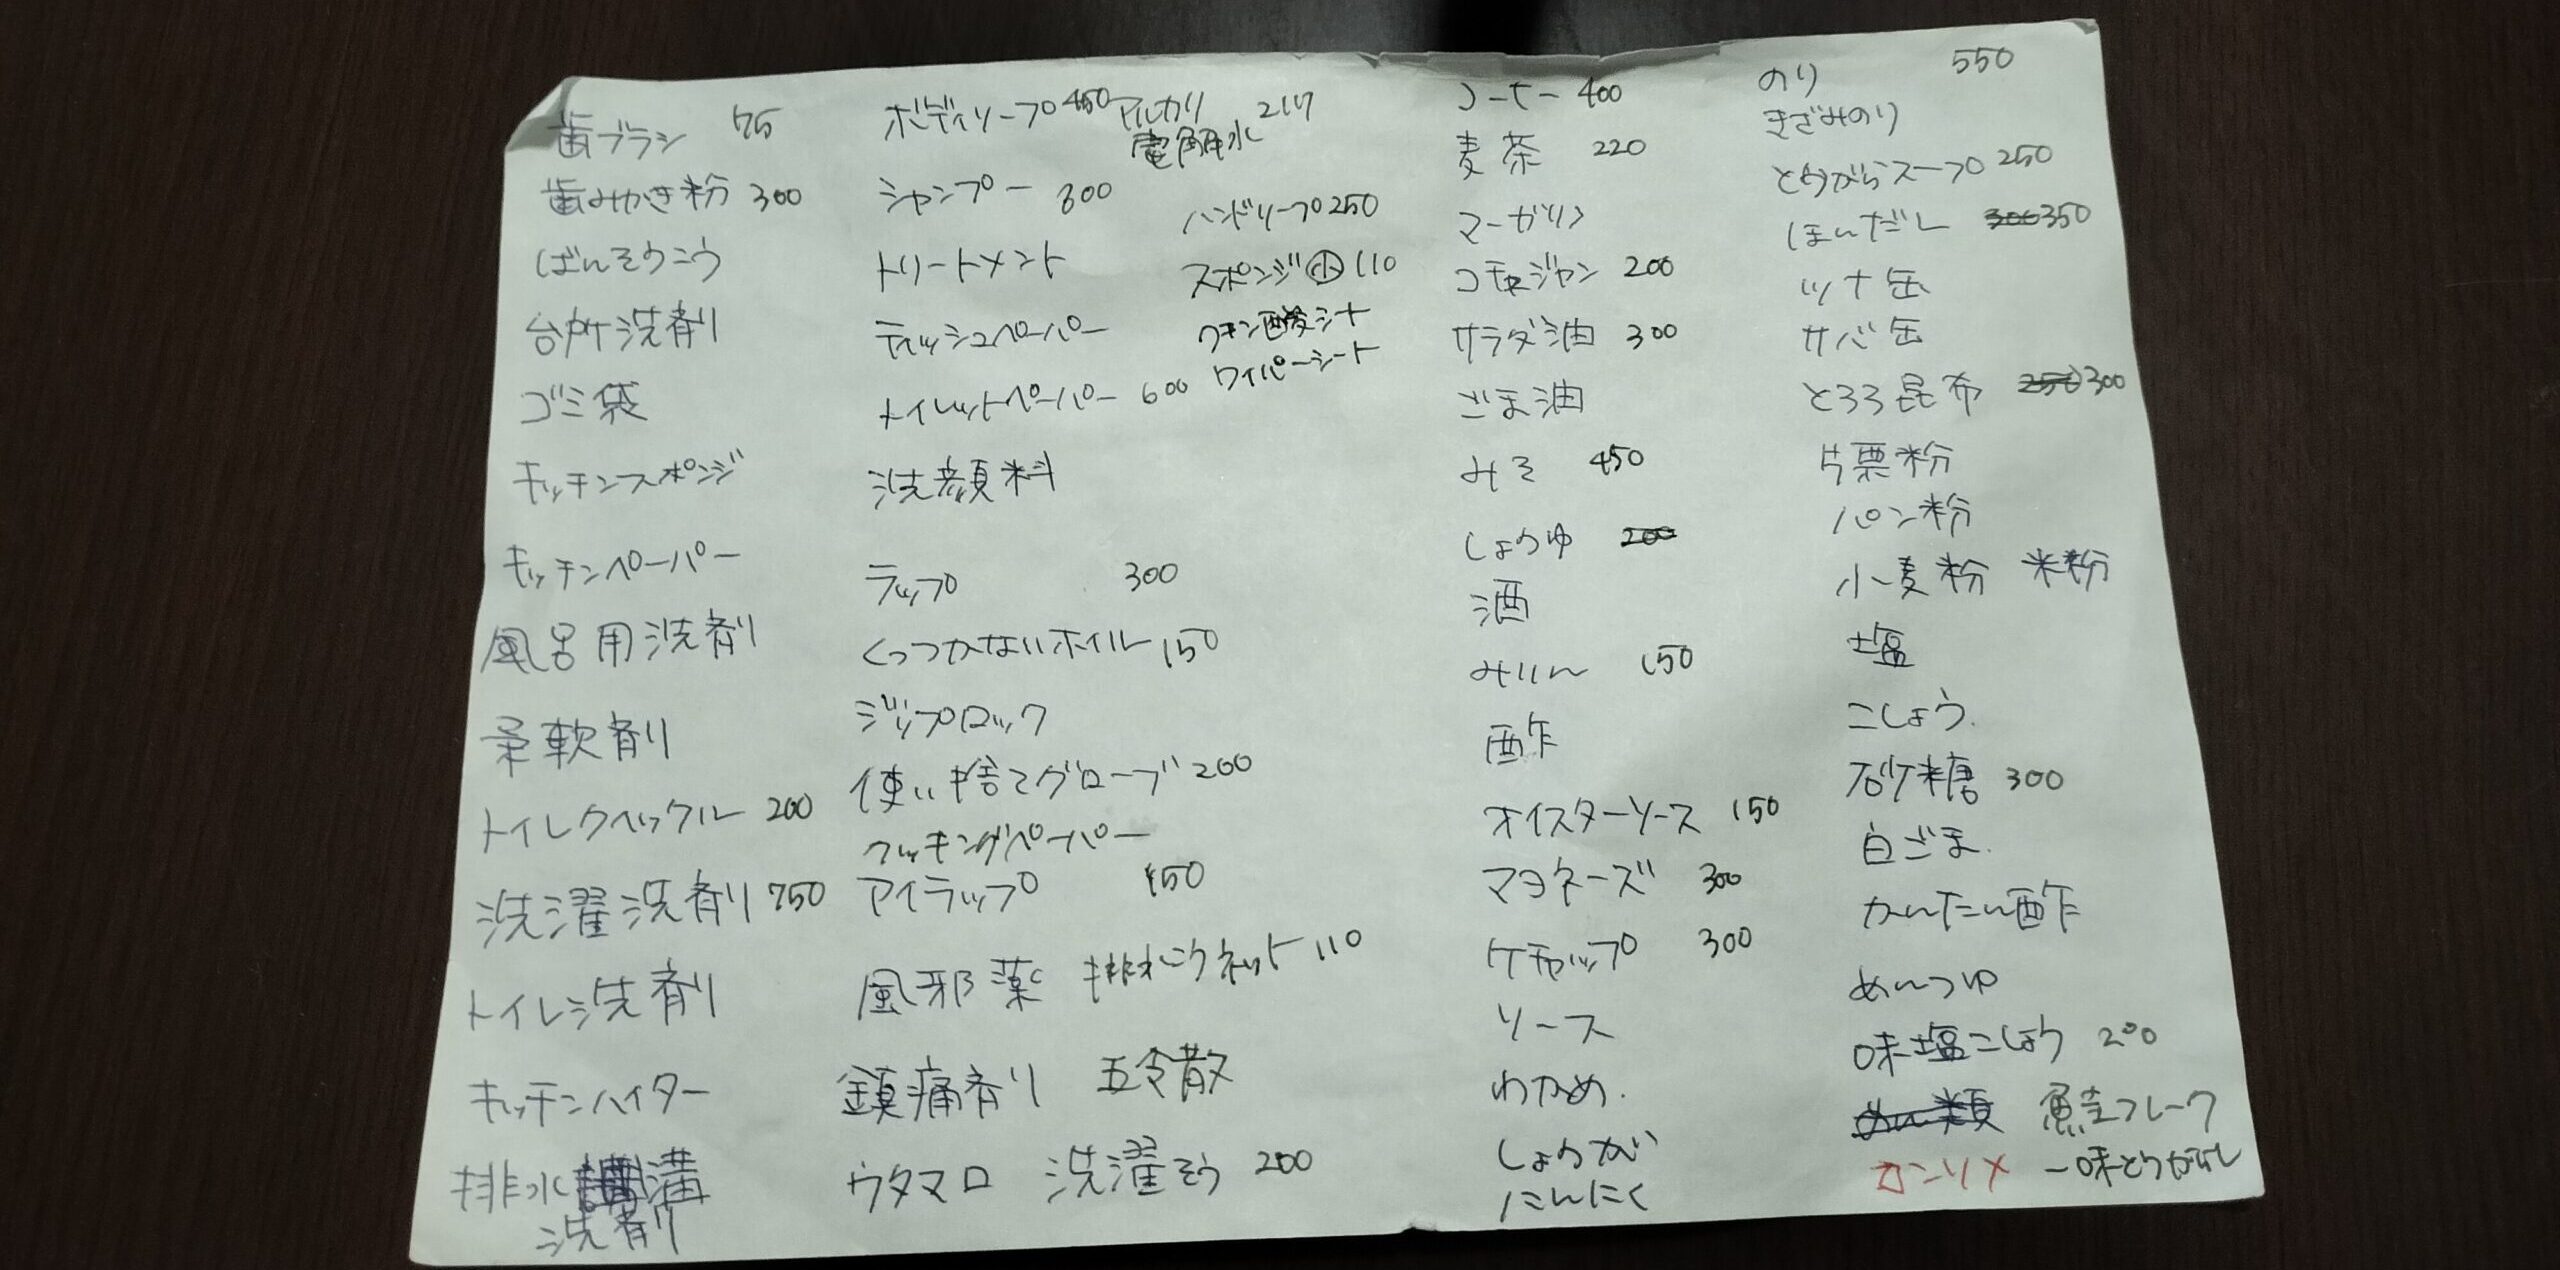 歯ブラシ 75
歯みがき粉 300
ばんそうこう
台所洗剤
ゴミ袋
キッチンスポンジ
キッチンペーパー
風呂用洗剤
柔軟剤
トイレクイックル 200
洗濯洗剤 750
トイレ洗剤
キッチンハイター
排水溝
洗剤
ボディソープ 450
シャンプー 300
トリートメント
ティッシュペーパー
トイレットペーパー 600
洗顔料
ラップ 300
くっつかないホイル 150
ジップロック
使い捨てグローブ 200
クッキングペーパー
アイラップ 150
風邪薬 排水こうネット 110
鎮痛剤 五令散
ウタマロ 洗濯そう 200
アルカリ 217
電解水
ハンドソープ 250
スポンジ㊥ 110
クエン酸シート
ワイパーシート
コーヒー 400
麦茶 220
マーガリン
コチュジャン 200
サラダ油 300
ごま油
みそ 450
しょうゆ 200
酒
みりん 150
酢
オイスターソース 150
マヨネーズ 300
ケチャップ 300
ソース
わかめ.
しょうが
にんにく
のり 550
きざみのり
とりがらスープ 250
ほんだし 300 350
ツナ缶
サバ缶
とろろ昆布 250 300
片栗粉
パン粉
小麦粉 米粉
塩
こしょう.
砂糖 300
白ごま.
かんたん酢
めんつゆ
味塩こしょう 200
めん類 鮭フレーク
カンソメ 一味とうがらし